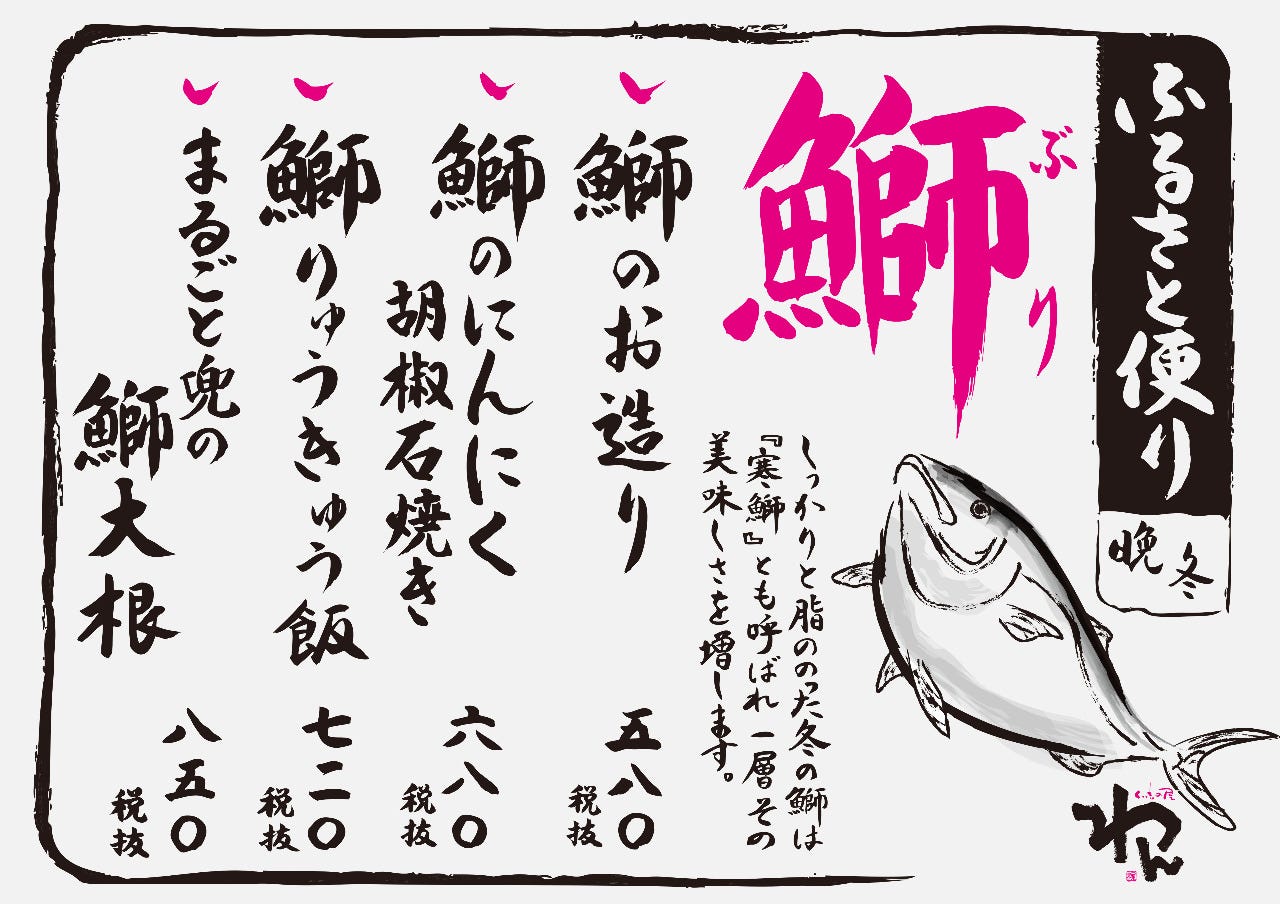 ふるさと便り
晩冬
鰤
ぶり
しっかりと脂ののった冬の鰤は
『寒鰤』とも呼ばれ一層その
美味しさを増します。
鰤のお造り
五八〇
税抜
鰤のにんにく
胡椒石焼き
六八〇
税抜
鰤りゅうきゅう飯
七二〇
税抜
まるごと兜の
鰤大根
八五〇
税抜
くいもの屋
わん